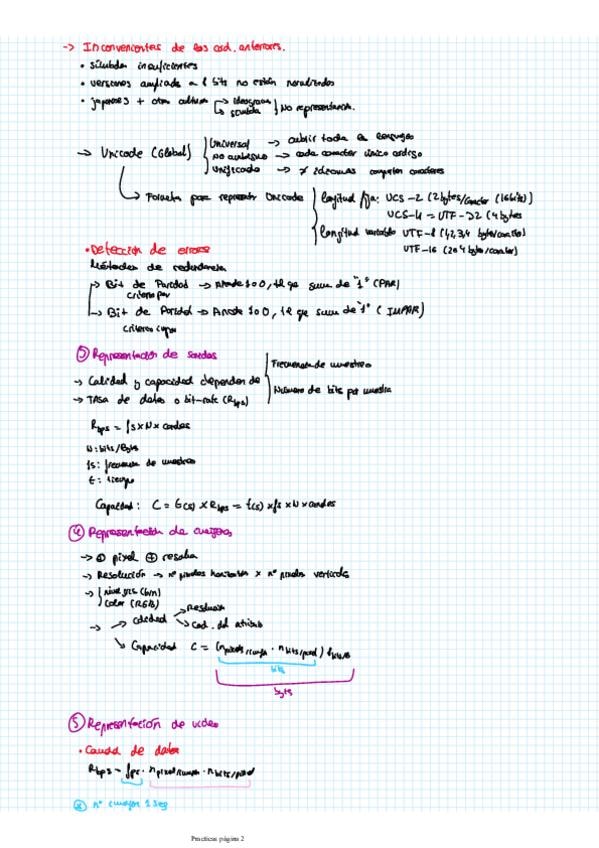 -> Inconvenientes de los cod. anteriores.
• símbolos insuficientes
• versiones ampliadas a 8 bits no están normalizadas
• japoneses + otras culturas -> ideogramas
No representación.
-> Unicode (Global) Universal -> cubrir todos
No ambiguo -> cada caracter único código
Unificado -> ≠ idiomas comparten caracteres
Formatos para representar Unicode
longitud fija: UCS-2 (2bytes/caracter (16bits))
UCS-4 = UTF-32 (4 bytes
longitud variable UTF-8 (1,2,3,4 byte/caracter)
UTF-16 (2 o 4 byte/caracter)
• Detección de errores
Métodos de redundancia
-> Bit de Paridad -> Añade 1 o 0, tal que suma de "1" (PAR)
criterio par
-> Bit de Paridad -> Añade 1 o 0, tal que suma de "1" (IMPAR)
criterio impar
③ Representación de sonidos
-> Calidad y capacidad dependen de Frecuencia de muestreo
Número de bits por muestra
-> Tasa de datos o bit-rate (Rbps)
Rbps = fs x N x canales
N: bits/
fs: frecuencia de muestreo
t: tiempo
Capacidad: C = t(s) x Rbps = t(s) x fs x N x canales
④ Representación de
-> ① pixel ⊕
-> Resolución -> nº pixeles horizontales x nº pixeles verticales
-> nivel gris
color (RGB)
-> -> calidad -> Resolución
-> Cod. del
Capacidad C = (npixels/ · nbits/pixel)
bits
byts
⑤ Representación de video
• Caudal de datos
Rbps = fps · npixel/ · nbits/pixel
nº 1 seg
Practicas página 2